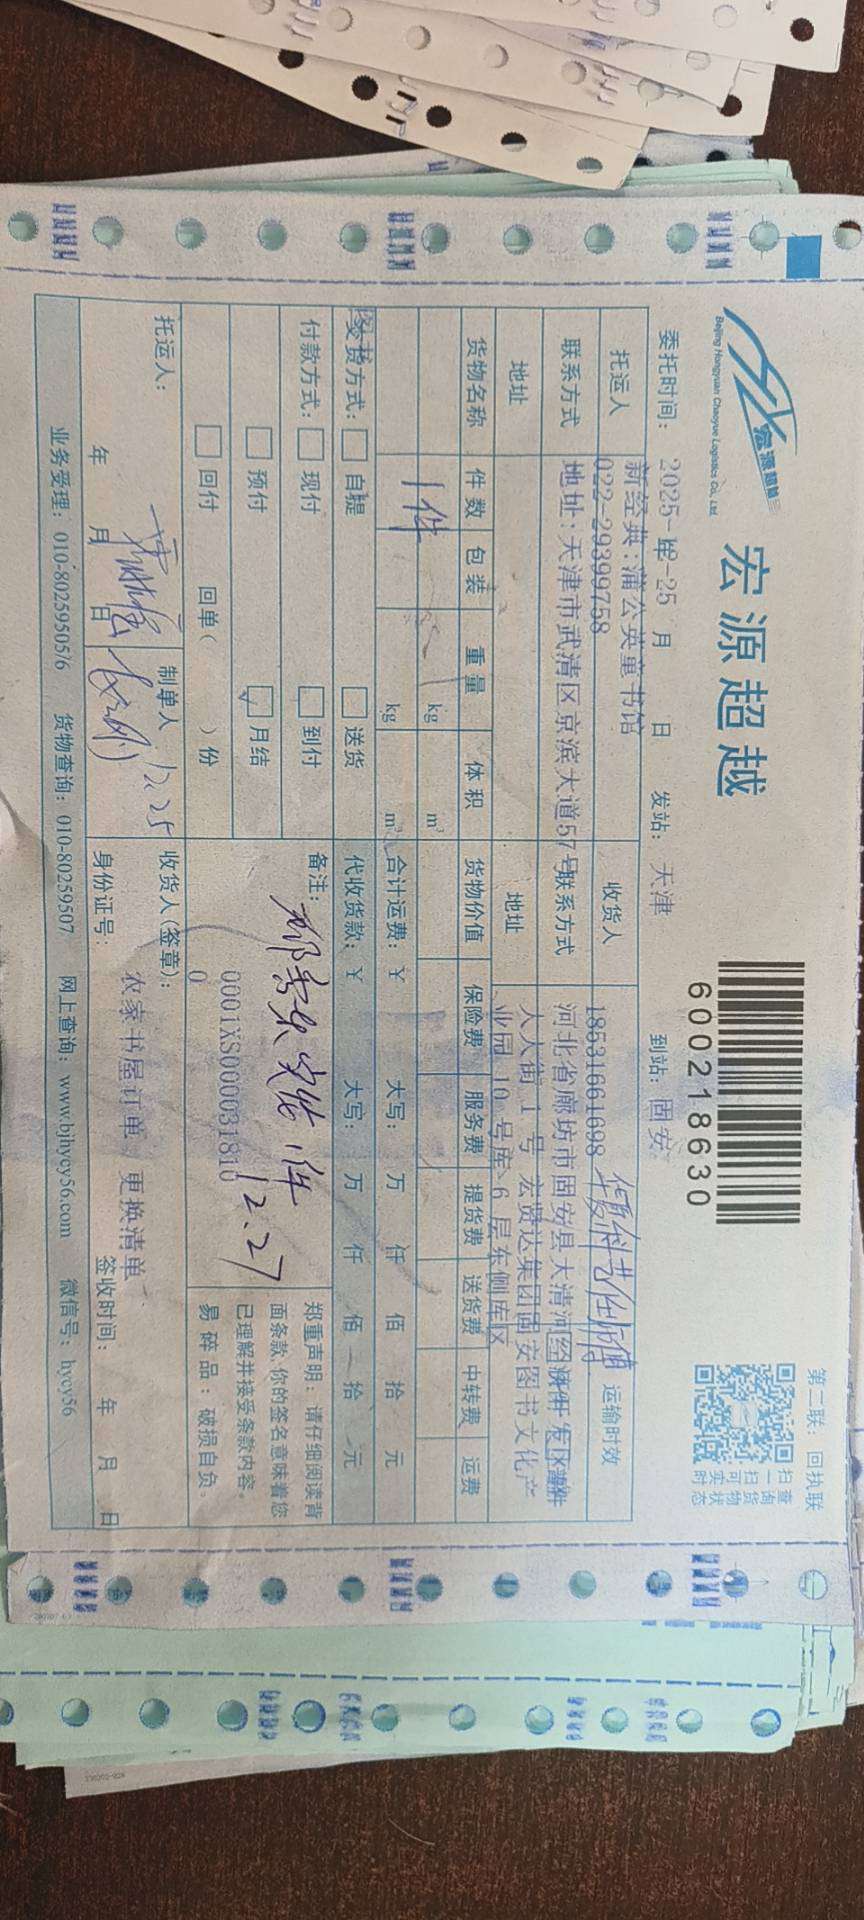 宏源超越
Beijing Hongyuan Chaoyue Logistics Co., Ltd.
宏源超越
600218630
第二联：回执联
扫查
一询
扫货
可物
实状
时态
委托时间：2025-12-25 年 月 日 发站：天津 到站：固安
托运人 新经典：蒲公英童书馆 收货人 运输时效
联系方式 022-29399758 联系方式 18531661698
地址 地址：天津市武清区京滨大道57号 地址 河北省廊坊市固安县大清河经济开发区
人大街 1 号 宏贤达集团固安图书文化产
业园 10 号库 6 层东侧库区
货物名称 件数 包装 重量 体积 货物价值 保险费 服务费 提货费 送货费 中转费 运费
kg m³
1件 kg m³ 合计运费：¥ 大写： 万 仟 佰 拾 元
交货方式： 自提 送货 代收货款：¥ 大写： 万 仟 佰 拾 元
付款方式： 现付 到付 备注：
预付 月结
回付 回单（ ）份
1件
12.27
0001XS000031810
0
郑重声明：请仔细阅读背
面条款，你的签名意味着您
已理解并接受条款内容。
易碎品：破损自负。
托运人： 制单人 12.25 收货人(签章)：
农家书屋订单，更换清单
年 月 日 身份证号： 签收时间： 年 月 日
业务受理：010-80259505/6 货物查询：010-80259507 网上查询：www.bjhycy56.com 微信号：hycy56